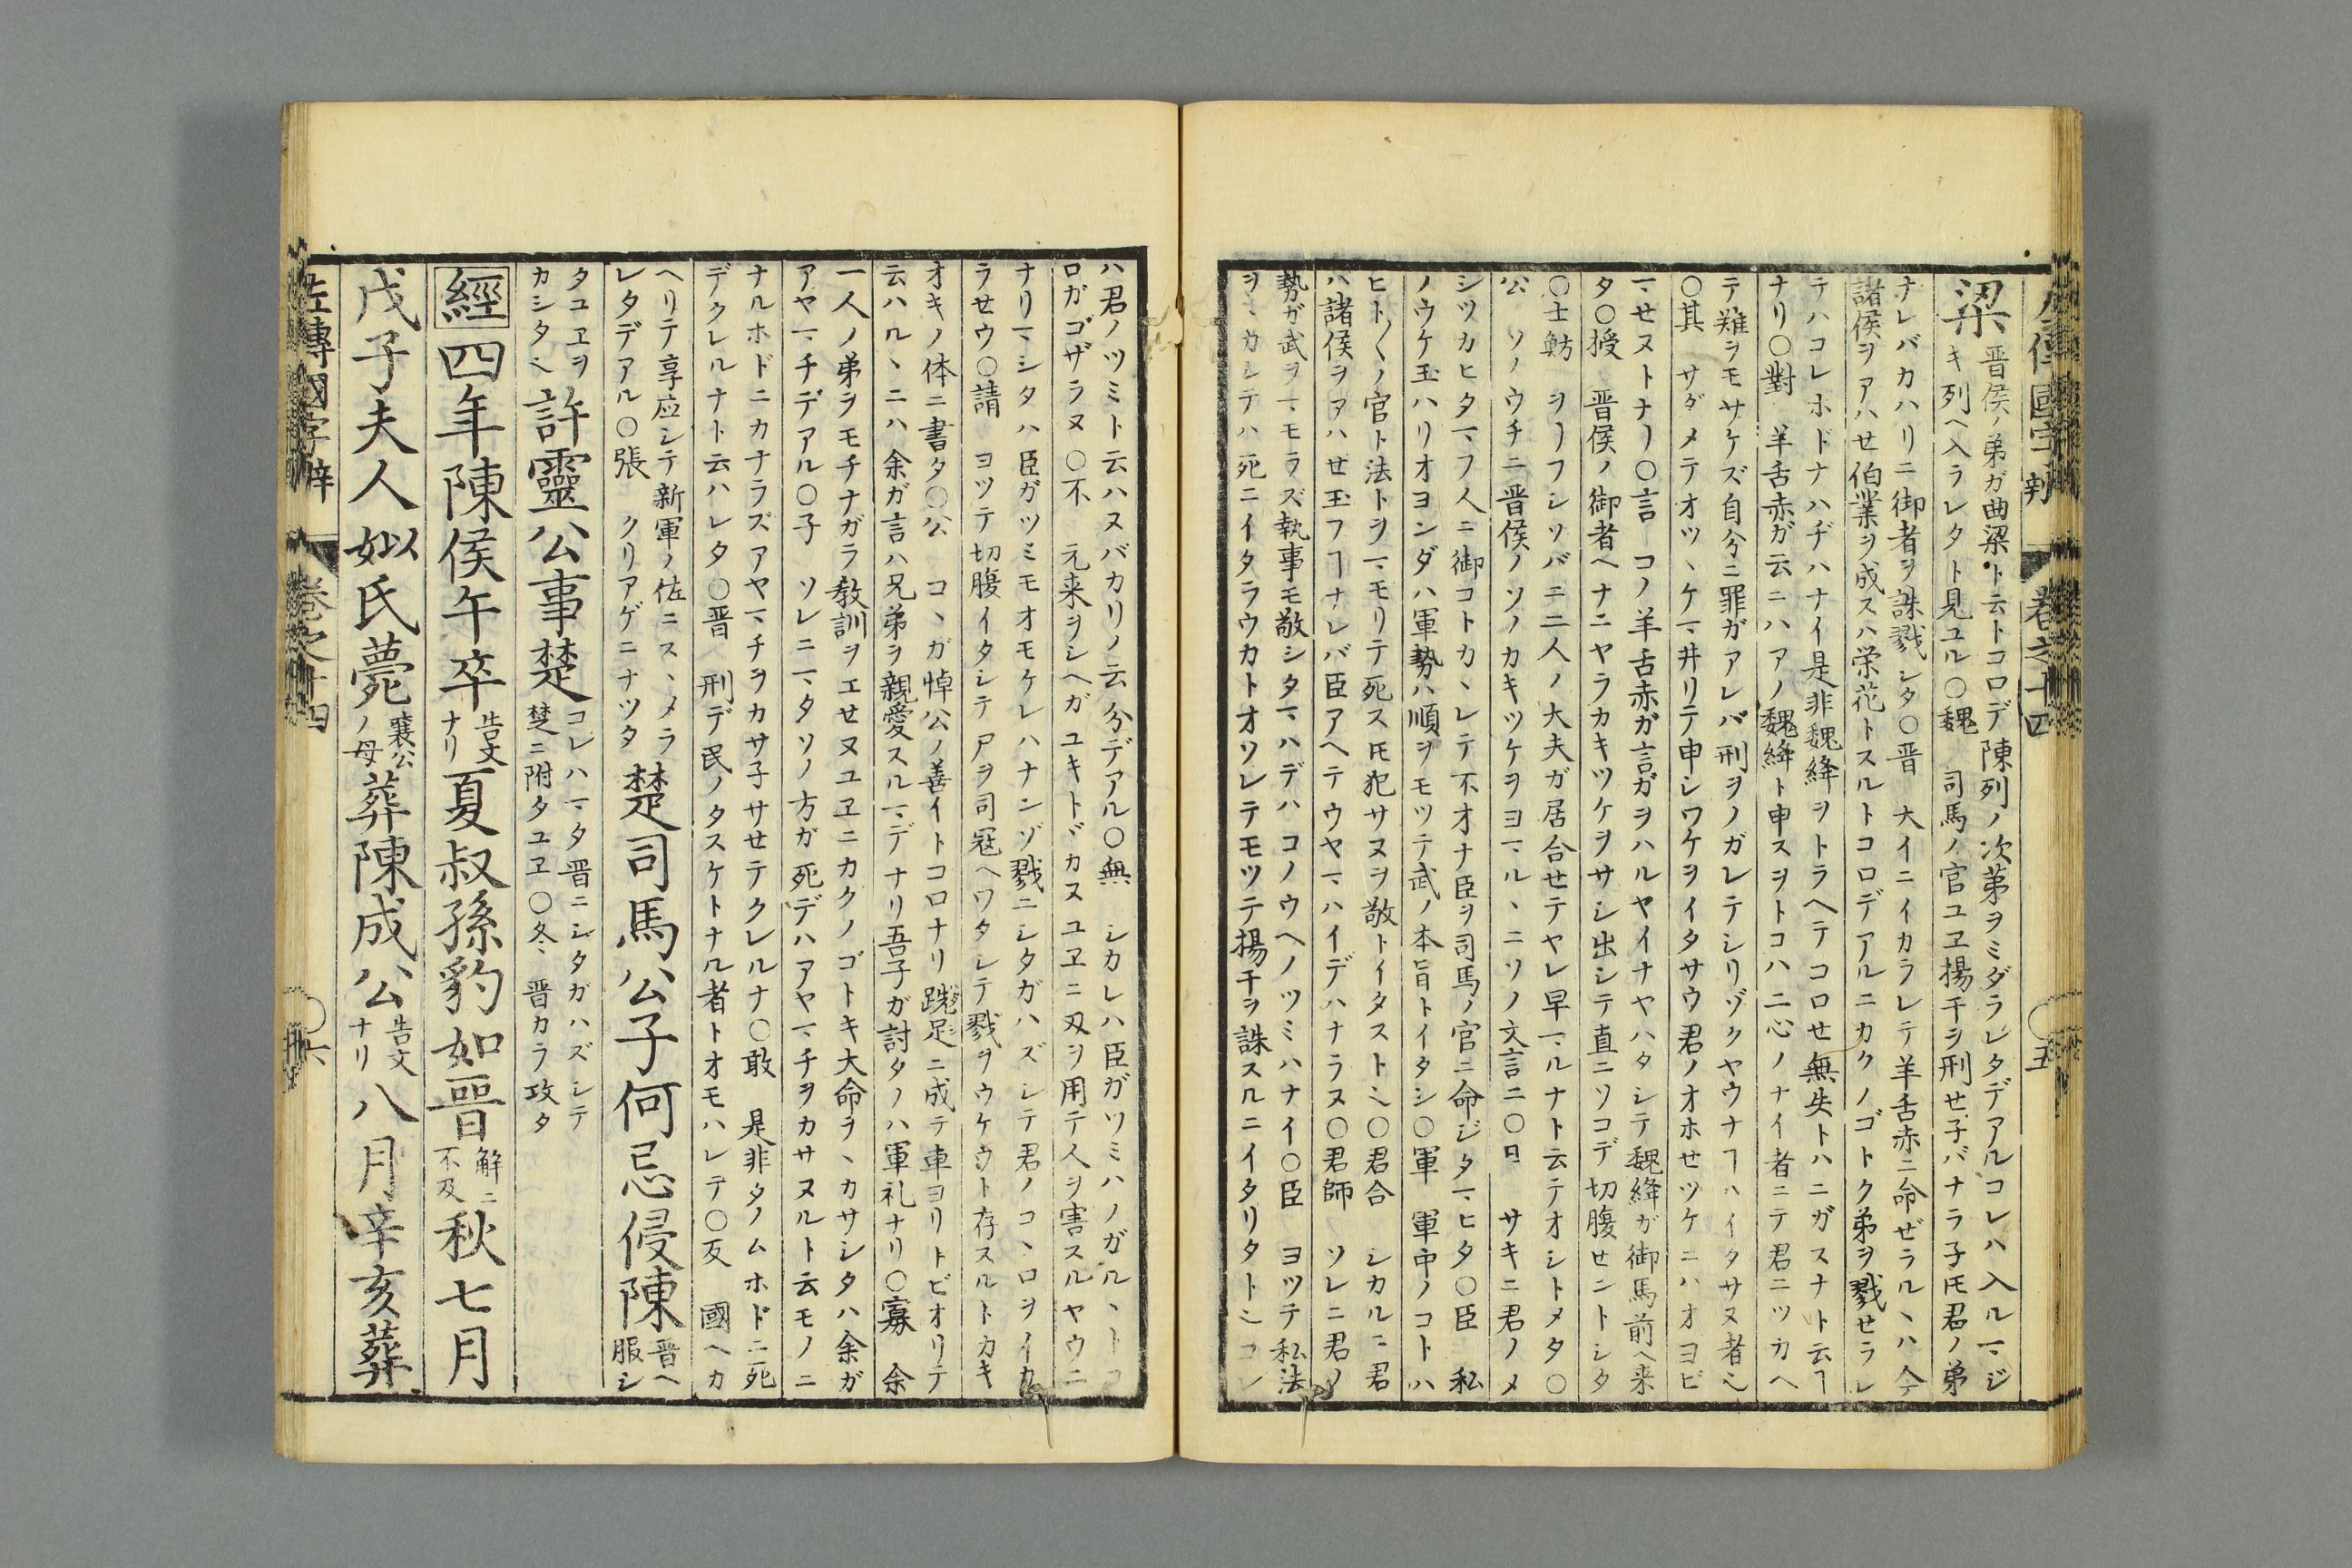 左傳國字辨 卷之十四 ○五
梁
晋侯ノ弟ガ曲梁ト云トコロデ陳列ノ次第ヲミダラレタデアルコレハ入ルマジ
キ列ヘ入ラレタト見ユル○魏 司馬ノ官ユヱ揚干ヲ刑せ子バナラ子𪜈君ノ弟
ナレバカハリニ御者ヲ誅戮シタ○晋 大イニイカラレテ羊舌赤ニ命ぜラルヽハ今
諸侯ヲアハせ伯業ヲ成スハ栄花トスルトコロデアルニカクノゴトク弟ヲ戮せラレ
テハコレホドナハヂハナイ是非魏絳ヲトラヘテコロせ無失トハニガスナト云ヿ
ナリ○對 羊舌赤ガ云ニハアノ魏絳ト申スヲトコハ二心ノナイ者ニテ君ニツカヘ
テ難ヲモサケズ自分ニ罪ガアレバ刑ヲノガレテシリゾクヤウナヿハイタサヌ者ヒ
○其 サダメテオツヽケマ井リテ申シワケヲイタサウ君ノオホせツケニハオヨビ
マせヌトナリ○言 コノ羊舌赤ガ言ガヲハルヤイナヤハタシテ魏絳ガ御馬前ヘ来
タ○授 晋侯ノ御者ヘナニヤラカキツケヲサシ出シテ直ニソコデ切腹せントシタ
○士魴 ヲリフシソバニ二人ノ大夫ガ居合せテヤレ早マルナト云テオシトメタ○
公 ソノウチニ晋侯ノソノカキツケヲヨマルヽニソノ文言ニ○日 サキニ君ノメ
シツカヒタマフ人ニ御コトカヽレテ不才ナ臣ヲ司馬ノ官ニ命ジタマヒタ○臣 私
ノウケ玉ハリオヨンダハ軍勢ハ順ヲモツテ武ノ本旨トイタシ○軍 軍中ノコトハ
ヒト〳〵ノ官ト法トヲマモリテ死ス𪜈犯サヌヲ敬トイタストヒ○君合 シカルニ君
ハ諸侯ヲアハせ玉フヿナレバ臣アヘテウヤマハイデハナラヌ○君師 ソレニ君ノ
勢ガ武ヲマモラズ執事モ敬シタマハデハコノウヘノツミハナイ○臣 ヨツテ私法
ヲヽカシテハ死ニイタラウカトオソレテモツテ揚干ヲ誅スルニイタリタトヒコレ
ハ君ノツミト云ハヌバカリノ云分デアル○無 シカレハ臣ガツミハノガルヽトコ
ロガゴザラヌ○不 元来ヲシヘガユキトドカヌユヱニ刄ヲ用テ人ヲ害スルヤウニ
ナリマシタハ臣ガツミモオモケレハナンゾ戮ニシタガハズシテ君ノコヽロヲイカ
ラせウ○請 ヨツテ切腹イタシテアヲ司冦ヘワタシテ戮ヲウケウト存スルトカキ
オキノ体ニ書タ○公 コヽガ悼公ノ善イトコロナリ跣足ニ成テ車ヨリトビオリテ
云ハルヽニハ余ガ言ハ兄弟ヲ親愛スルマデナリ吾子ガ討タノハ軍礼ナリ○寡 余
一人ノ弟ヲモチナガラ教訓ヲエせヌユヱニカクノゴトキ大命ヲヽカサシタハ余ガ
アヤマチデアル○子 ソレニマタソノ方ガ死デハアヤマチヲカサヌルト云モノニ
ナルホドニカナラズアヤマチヲカサ子サせテクレルナ○敢 是非タノムホドニ死
デクレルナト云ハレタ○晋 刑デ民ノタスケトナル者トオモハレテ○反 國ヘカ
ヘリテ享应シテ新軍ノ佐ニスヽメラ
レタデアル○張 クリアゲニナツタ
楚司馬公子何忌侵陳
晋ヘ
服シ
タユヱヲ
カシタヒ
許靈公事楚
コレハマタ晋ニシタガハズシテ
楚ニ附タユヱ○冬 晋カラ攻タ
經四年陳侯午卒
告文
ナリ
夏叔孫豹如晋
解ニ
不及
秋七月
戊子夫人姒氏薨
襄公
ノ母
葬陳成公
告文
ナリ
八月辛亥葬
左傳國字辨 卷之十四 ○六